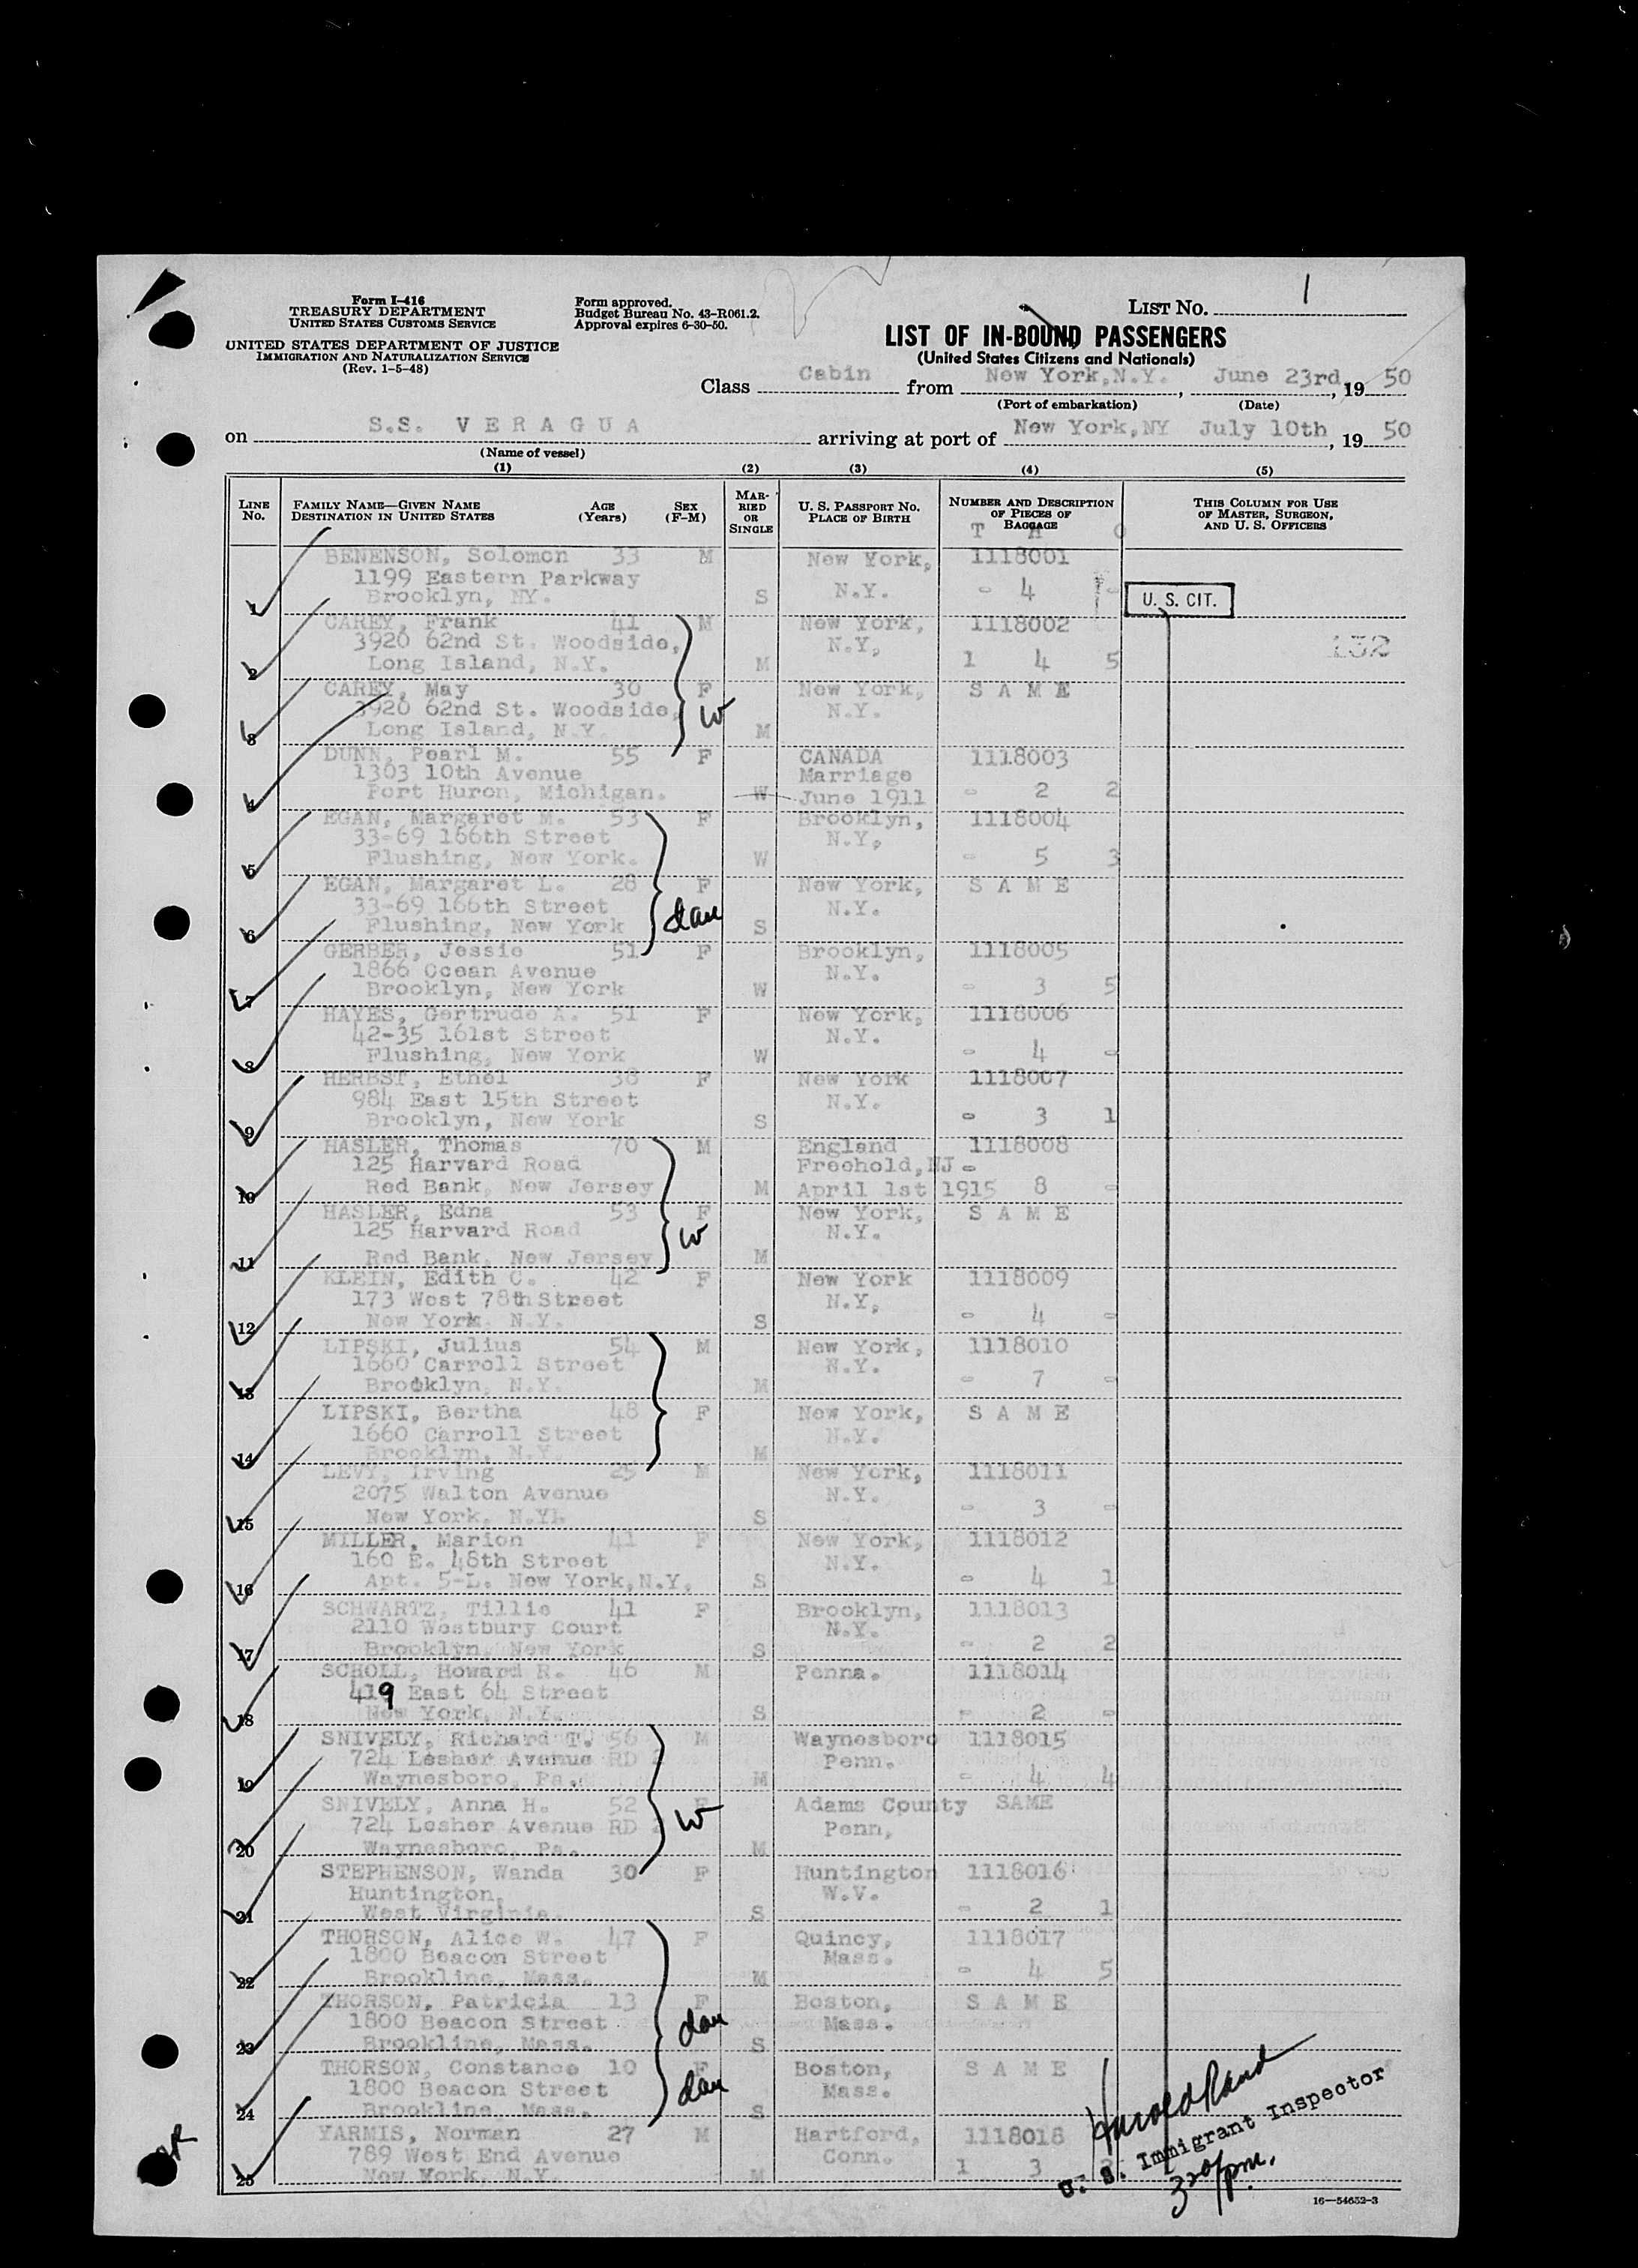 Form I-416
TREASURY DEPARTMENT
UNITED STATES CUSTOMS SERVICE
UNITED STATES DEPARTMENT OF JUSTICE
IMMIGRATION AND NATURALIZATION SERVICE
(Rev. 1-5-48)
Form approved.
Budget Bureau No. 43-R061.2.
Approval expires 6-30-50.
LIST NO. 1
LIST OF IN-BOUND PASSENGERS
(United States Citizens and Nationals)
Class Cabin from New York, N.Y. , June 23rd, 19 50
(Port of embarkation) (Date)
on S.S. VERAGUA arriving at port of New York, NY July 10th, 19 50
(Name of vessel)
(1) (2) (3) (4) (5)
LINE NO. FAMILY NAME—GIVEN NAME DESTINATION IN UNITED STATES AGE (Years) SEX (F-M) MARRIED OR SINGLE U. S. PASSPORT NO. PLACE OF BIRTH NUMBER AND DESCRIPTION OF PIECES OF BAGGAGE THIS COLUMN FOR USE OF MASTER, SURGEON, AND U. S. OFFICERS
T H O
BENENSON, Solomon 33 M New York, 1118001
1199 Eastern Parkway N.Y. - 4 -
1 Brooklyn, NY. S U. S. CIT.
CAREY, Frank 41 M New York, 1118002
3920 62nd St. Woodside, N.Y, 132
2 Long Island, N.Y. M 1 4 5
CAREY, May 30 F New York, S A M E
3920 62nd St. Woodside, W N.Y.
3 Long Island, N.Y. M
DUNN, Pearl M. 55 F CANADA 1118003
1303 10th Avenue Marriage
4 Port Huron, Michigan. W June 1911 - 2 2
EGAN, Margaret M. 53 F Brooklyn, 1118004
33-69 166th Street N.Y,
5 Flushing, New York. W - 5 3
EGAN, Margaret L. 28 F New York, S A M E
33-69 166th Street dau N.Y.
6 Flushing, New York S
GERBER, Jessie 51 F Brooklyn, 1118005
1866 Ocean Avenue N.Y.
7 Brooklyn, New York W - 3 5
HAYES, Gertrude A. 51 F New York, 1118006
42-35 161st Street N.Y.
8 Flushing, New York W - 4 -
HERBST, Ethel 38 F New York 1118007
984 East 15th Street N.Y.
9 Brooklyn, New York S - 3 1
HASLER, Thomas 70 M England 1118008
125 Harvard Road Freehold, NJ -
10 Red Bank, New Jersey M April 1st 1915 8 -
HASLER, Edna 53 F New York, S A M E
125 Harvard Road W N.Y.
11 Red Bank, New Jersey M
KLEIN, Edith C. 42 F New York 1118009
173 West 78th Street N.Y,
12 New York, N.Y. S - 4 -
LIPSKI, Julius 54 M New York, 1118010
1660 Carroll Street N.Y.
13 Brooklyn, N.Y. M - 7 -
LIPSKI, Bertha 48 F New York, S A M E
1660 Carroll Street N.Y.
14 Brooklyn, N.Y. M
LEVY, Irving 25 M New York, 1118011
2075 Walton Avenue N.Y.
15 New York, N.Y. S - 3 -
MILLER, Marion 41 F New York, 1118012
160 E. 48th Street N.Y.
16 Apt. 5-L. New York, N.Y. S - 4 1
SCHWARTZ, Tillie 41 F Brooklyn, 1118013
2110 Westbury Court N.Y.
17 Brooklyn, New York S - 2 2
SCHOLL, Howard R. 46 M Penna. 1118014
419 East 64 Street
18 New York, N.Y. S - 2 -
SNIVELY, Richard T. 56 M Waynesboro 1118015
724 Lesher Avenue RD 2 Penn.
19 Waynesboro, Pa. M - 4 4
SNIVELY, Anna H. 52 F Adams County SAME
724 Lesher Avenue RD 2 W Penn,
20 Waynesboro, Pa. M
STEPHENSON, Wanda 30 F Huntington 1118016
Huntington, W.V.
21 West Virginia. S - 2 1
THORSON, Alice W. 47 F Quincy, 1118017
1800 Beacon Street Mass.
22 Brookline, Mass. M - 4 5
THORSON, Patricia 13 F Boston, S A M E
1800 Beacon Street dau Mass.
23 Brookline, Mass. S
THORSON, Constance 10 F Boston, S A M E
1800 Beacon Street dau Mass.
24 Brookline, Mass. S
YARMIS, Norman 27 M Hartford, 1118018
789 West End Avenue Conn.
25 New York, N.Y. M 1 3
Harold Rand
U. S. Immigrant Inspector
320/pm.
16—54652-3